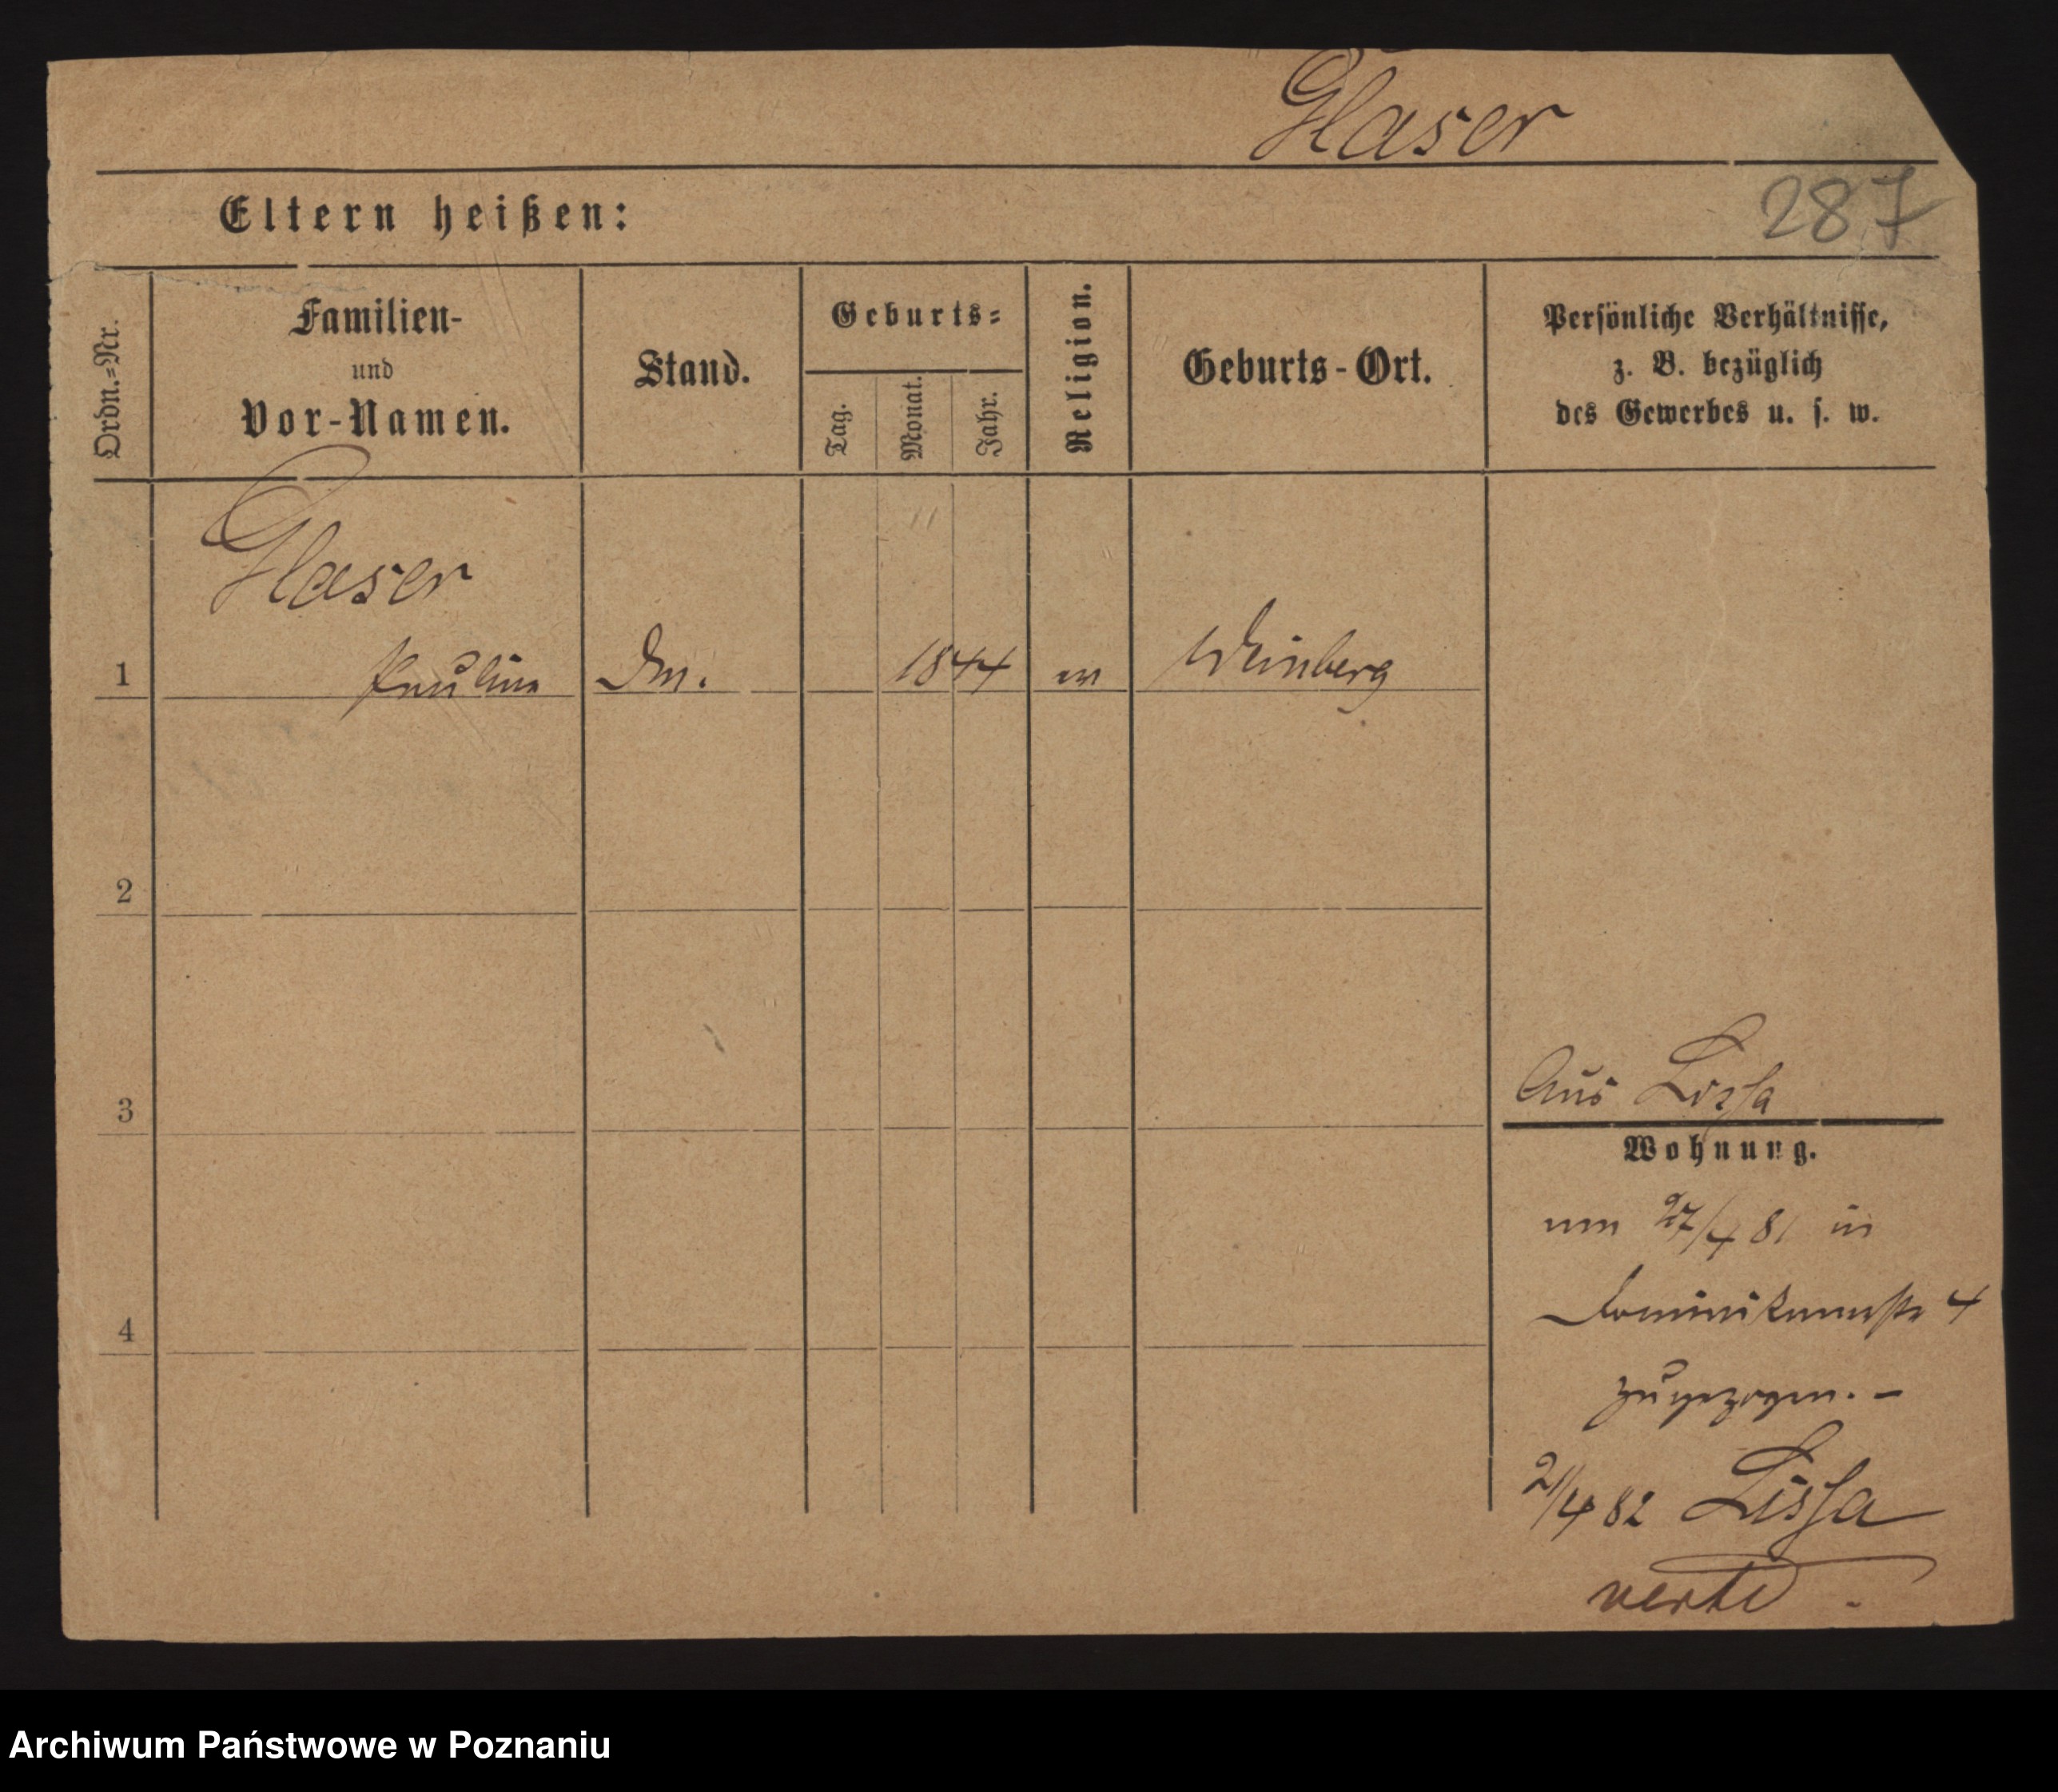 Glaser
287
Eltern heißen:
Ordn.=Nr.
Familien-
und
Vor-Namen.
Stand.
Geburts=
Tag.
Monat.
Jahr.
Religion.
Geburts-Ort.
Persönliche Verhältnisse,
z. B. bezüglich
des Gewerbes u. s. w.
Glaser
1 Pauline 1844 Weinberg
2
3
4
Aus Lissa
Wohnung.
27/4 81 in
Dominikanerstr 4
zugezogen. –
21/4 82 Lissa
verte
Archiwum Państwowe w Poznaniu